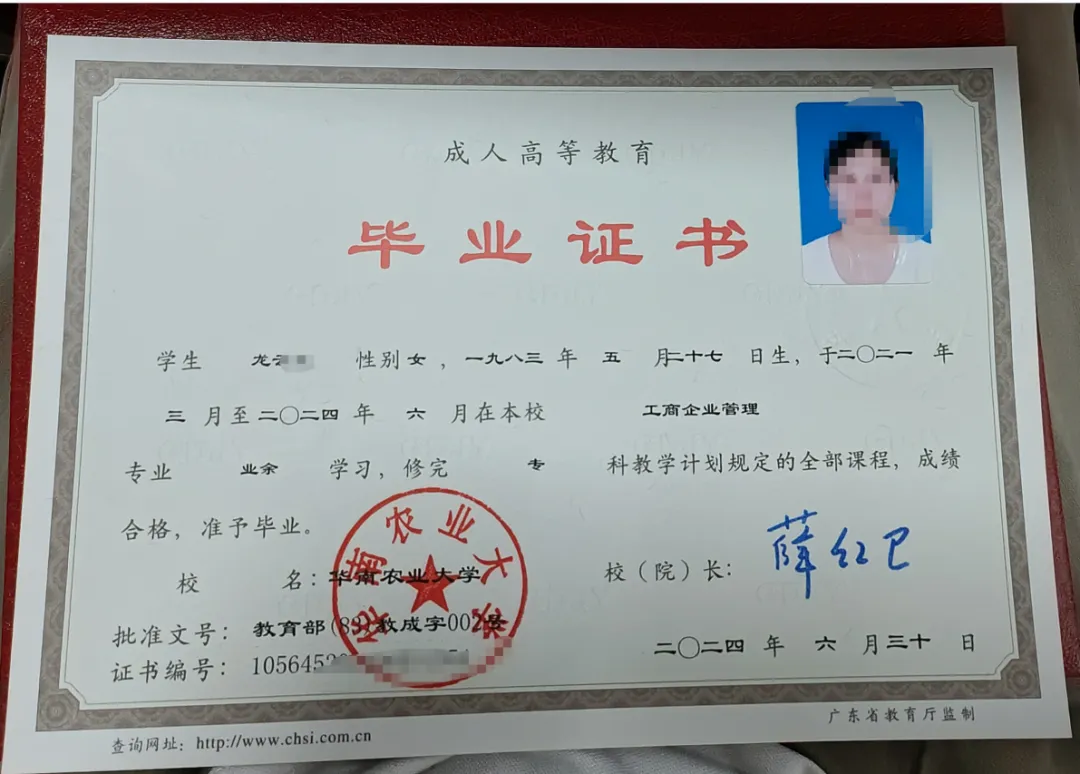 成人高等教育
毕业证书
学生 龙 性别女，一九八三年 五 月二十七 日生，于二〇二一 年
三 月至二〇二四年 六 月在本校 工商企业管理
专业 业余 学习，修完 专 科教学计划规定的全部课程，成绩
合格，准予毕业。
校 名：华南农业大学
校（院）长：薛红卫
批准文号：教育部(83)教成字002号
证书编号：1056452
二〇二四 年 六 月三十 日
华南农业大学
广东省教育厅监制
查询网址：http://www.chsi.com.cn